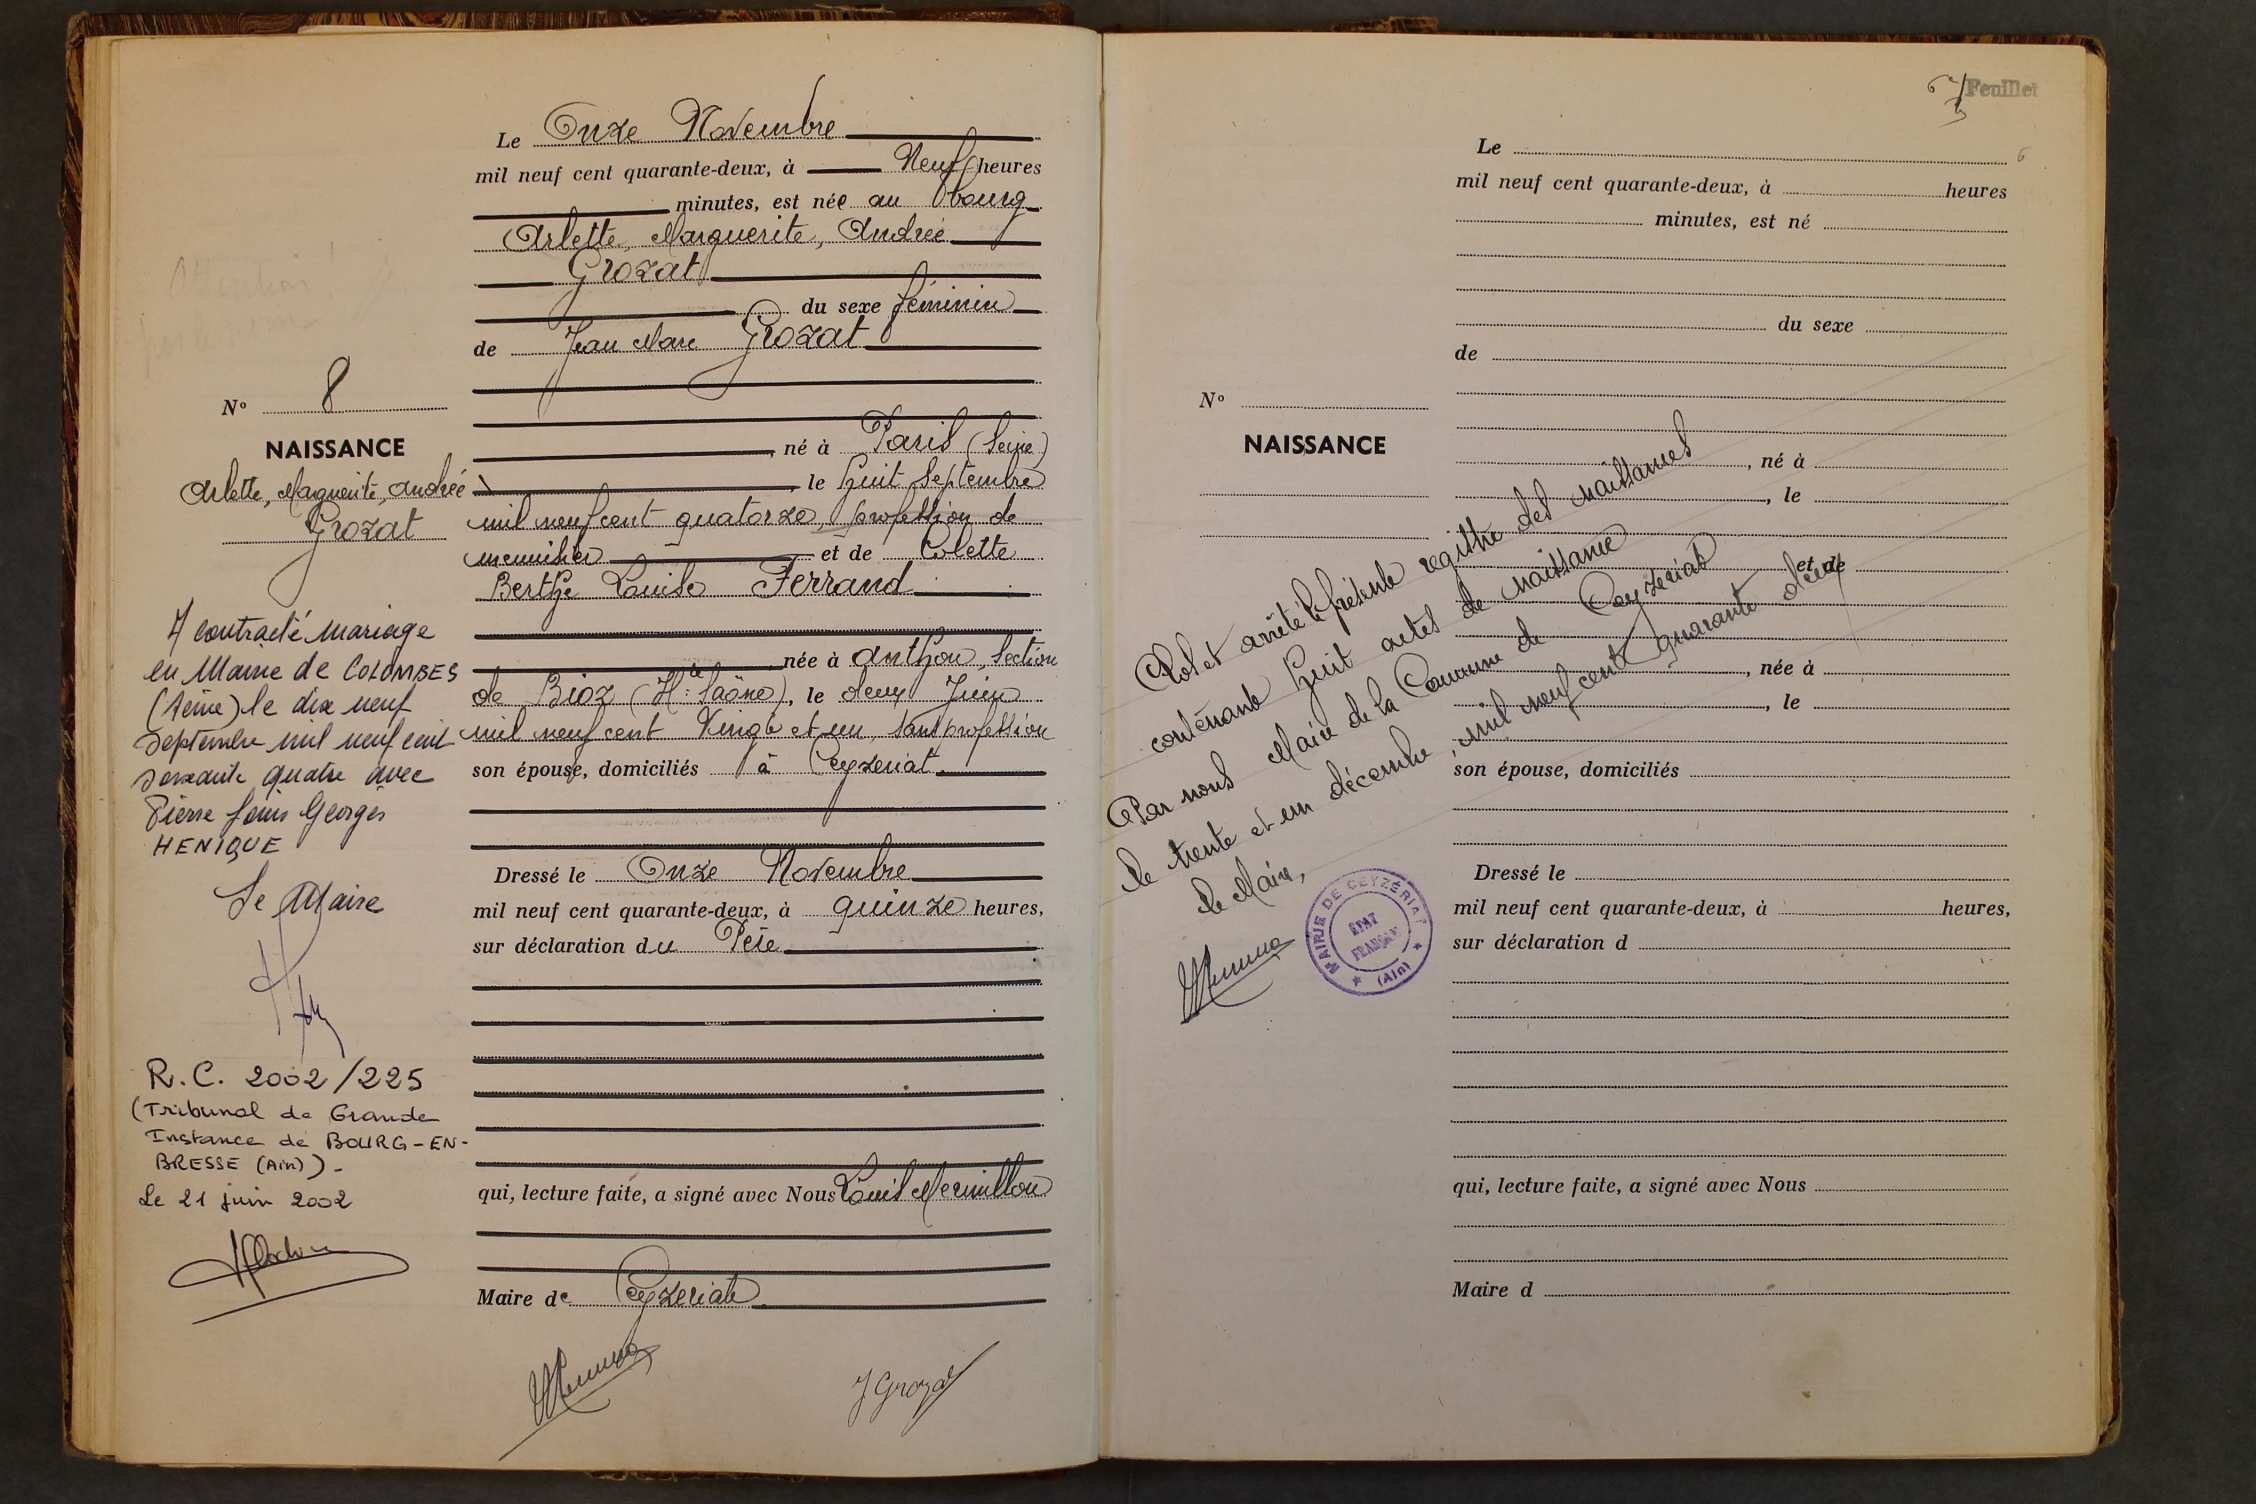 Le Onze Novembre
mil neuf cent quarante-deux, à Neuf heures
minutes, est née au bourg
Arlette, Marguerite, Andrée
Grozat
du sexe féminin
de Jean Marc Grozat
né à Paris (Seine)
le huit Septembre
mil neuf cent quatorze, profession de
menuisier et de Colette
Berthe Louise Ferrand
née à Anthon, Section
de Bioz (Hte Saône), le deux Juin
mil neuf cent vingt et un, sans profession
son épouse, domiciliés à Ceyzeriat
Dressé le Onze Novembre
mil neuf cent quarante-deux, à quinze heures,
sur déclaration du Père
qui, lecture faite, a signé avec Nous Louis Mermillon
Maire de Ceyzeriat
J Grozat
No 8
NAISSANCE
Arlette, Marguerite, Andrée
Grozat
A contracté mariage
en Mairie de COLOMBES
(Seine) le dix neuf
septembre mil neuf cent
soixante quatre avec
Pierre Louis Georges
HENIQUE
Le Maire
R.C. 2002/225
(Tribunal de Grande
Instance de BOURG-EN-
BRESSE (Ain)) -
Le 21 juin 2002
Feuillet
6
Le
mil neuf cent quarante-deux, à heures
minutes, est né
du sexe
de
No
NAISSANCE
, né à
, le
et de
, née à
, le
son épouse, domiciliés
Dressé le
mil neuf cent quarante-deux, à heures,
sur déclaration d
qui, lecture faite, a signé avec Nous
Maire d
Clos et arrêté le présent registre des naissances
contenant huit actes de naissance
Par nous Maire de la Commune de Ceyzeriat
le trente et un décembre mil neuf cent quarante deux
le Maire,
MAIRIE DE CEYZÉRIAT
ÉTAT
FRANÇAIS
(Ain)